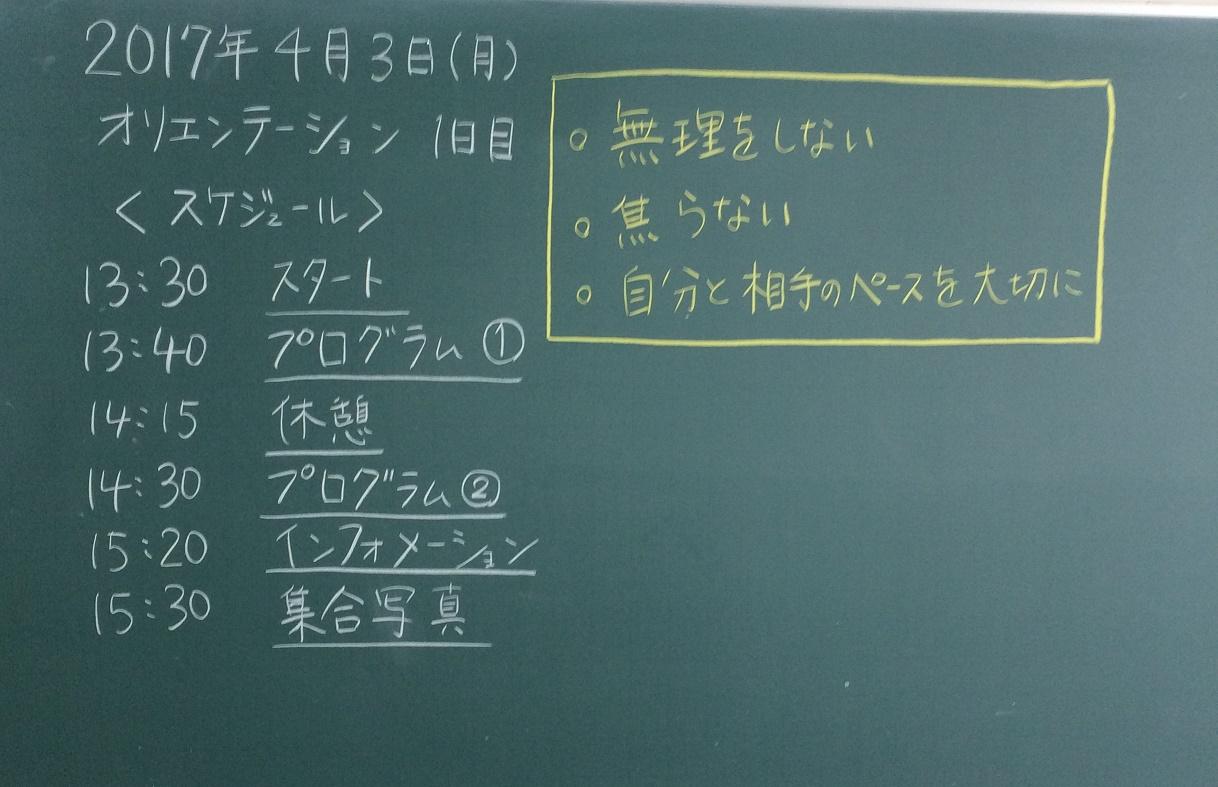 2017年4月3日(月)
オリエンテーション 1日目
<スケジュール>
13:30 スタート
13:40 プログラム①
14:15 休憩
14:30 プログラム②
15:20 インフォメーション
15:30 集合写真
○ 無理をしない
○ 焦らない
○ 自分と相手のペースを大切に